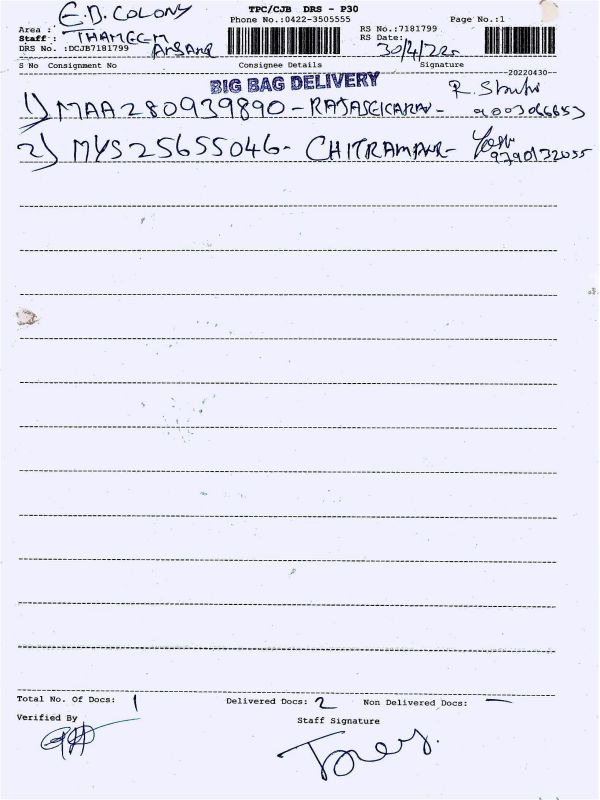 E.B. COLONY
TPC/CJB DRS - P30
Area :
Phone No.:0422-3505555
Page No.:1
Staff :
RS No.:7181799
RS Date:
30/4/22
DRS No. :DCJB7181799
S No Consignment No Consignee Details Signature
-20220430-
BIG BAG DELIVERY
1) MAA280939890 -
9003066653
2) MYS25655046 -
9790132055
Total No. Of Docs: 1 Delivered Docs: 2 Non Delivered Docs: —
Verified By
Staff Signature